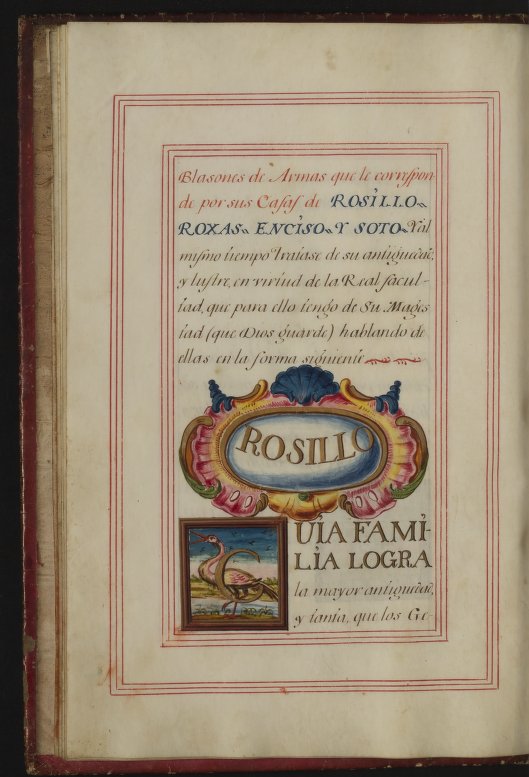 Blasones de Armas que le correspon-
de por sus Casas de ROSILLO~
ROXAS~ ENCISO~ Y SOTO~ Y al
mismo tiempo tratase de su antiguedad,
y lustre, en virtud de la Real facul-
tad, que para ello tengo de Su Mages
tad (que Dios guarde) hablando de
ellas en la forma siguiente
ROSILLO
CUIA FAMI-
LIA LOGRA
la mayor antiguedad,
y tanta, que los Ge-